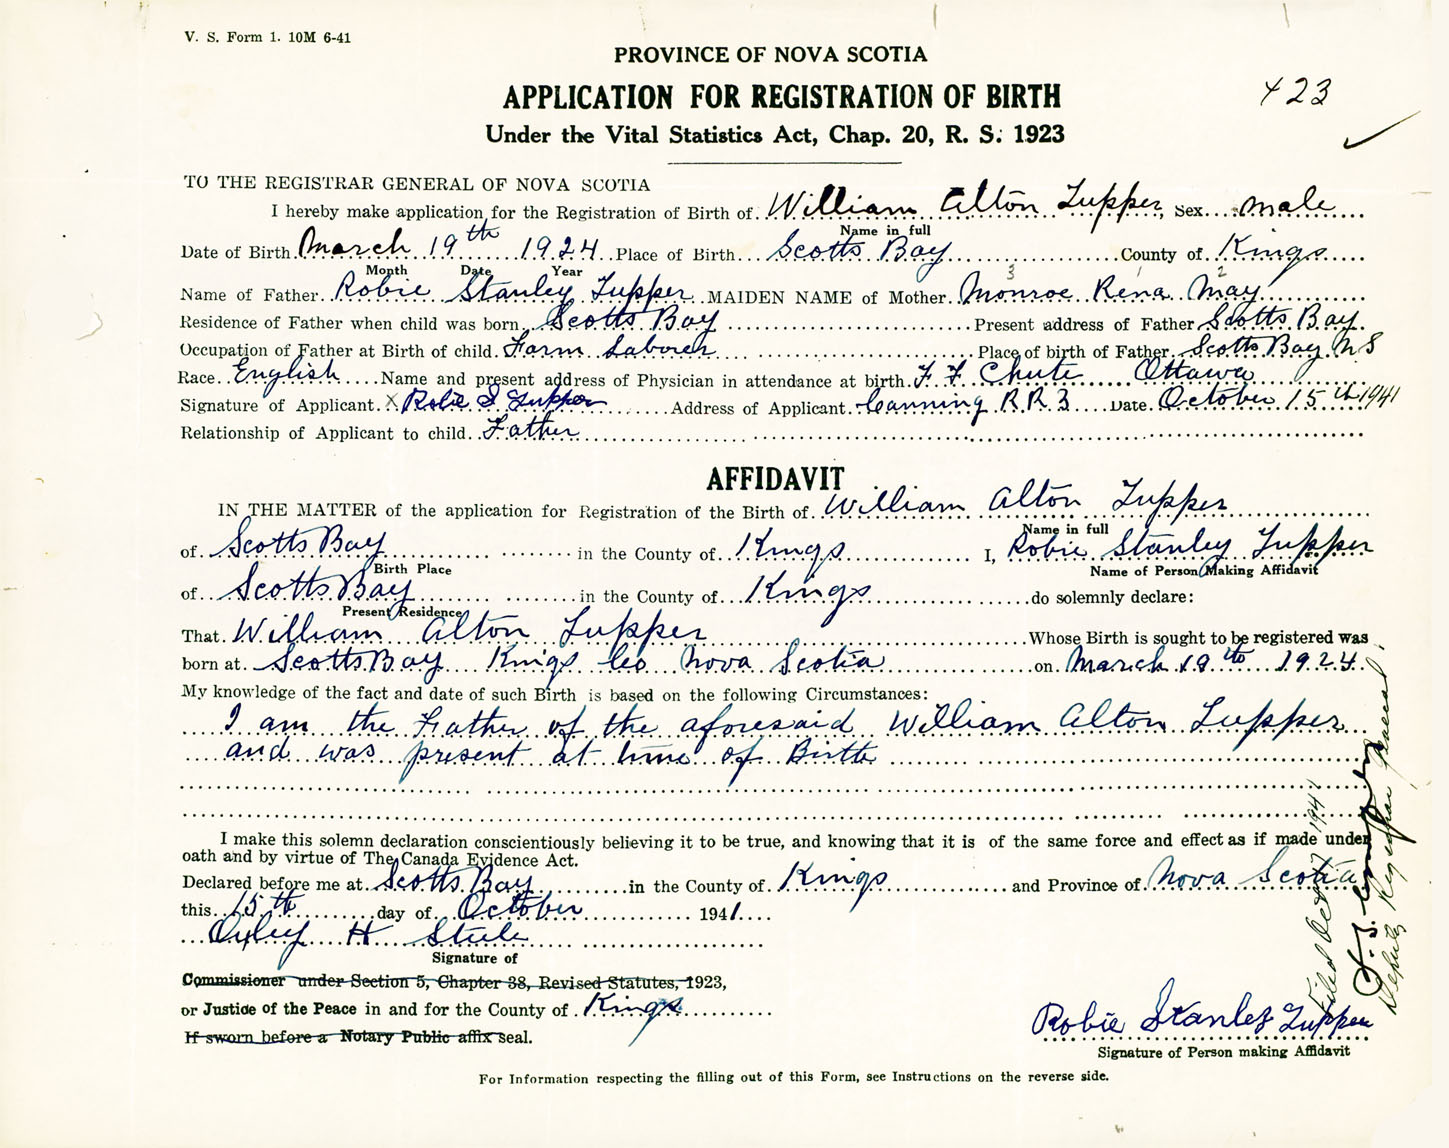 V. S. Form 1. 10M 6-41
PROVINCE OF NOVA SCOTIA
APPLICATION FOR REGISTRATION OF BIRTH
423
Under the Vital Statistics Act, Chap. 20, R. S. 1923
TO THE REGISTRAR GENERAL OF NOVA SCOTIA
I hereby make application for the Registration of Birth of William Alton Tupper, Sex male
Name in full
Date of Birth March 19th 1924 Place of Birth Scotts Bay County of Kings
Month Date Year
3 1 2
Name of Father Robie Stanley Tupper MAIDEN NAME of Mother Monroe Rena May
Residence of Father when child was born Scotts Bay Present address of Father Scotts Bay
Occupation of Father at Birth of child Farm Laborer Place of birth of Father Scotts Bay N S
Race English Name and present address of Physician in attendance at birth F. F. Chute Ottawa
Signature of Applicant X Robie S Tupper Address of Applicant Canning R R 3 Date October 15th 1941
Relationship of Applicant to child Father
AFFIDAVIT
IN THE MATTER of the application for Registration of the Birth of William Alton Tupper
Name in full
of Scotts Bay in the County of Kings I, Robie Stanley Tupper
Birth Place Name of Person Making Affidavit
of Scotts Bay in the County of Kings do solemnly declare:
Present Residence
That William Alton Tupper Whose Birth is sought to be registered was
born at Scotts Bay Kings Co Nova Scotia on March 19th 1924
My knowledge of the fact and date of such Birth is based on the following Circumstances:
I am the Father of the aforesaid William Alton Tupper
and was present at time of Birth
I make this solemn declaration conscientiously believing it to be true, and knowing that it is of the same force and effect as if made under
oath and by virtue of The Canada Evidence Act.
Declared before me at Scotts Bay in the County of Kings and Province of Nova Scotia
this 15th day of October 1941
H Steele
Signature of
Commissioner under Section 5, Chapter 38, Revised Statutes, 1923,
or Justice of the Peace in and for the County of Kings
If sworn before a Notary Public affix seal.
Robie Stanley Tupper
Signature of Person making Affidavit
For Information respecting the filling out of this Form, see Instructions on the reverse side.
Filed Oct 17 1941
Deputy Registrar General